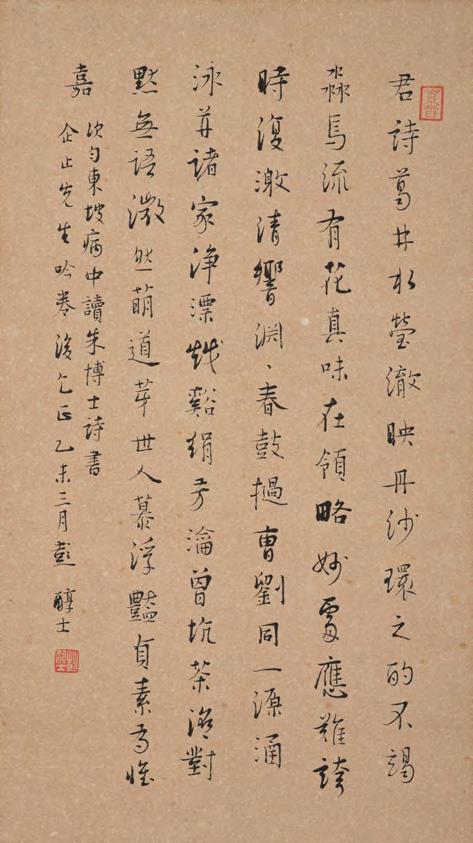 君詩葛井水瑩澈映丹沙環之的不竭
淼焉流有花真味在領略妙處應難誇
時復激清響淵、春鼓撾曹劉同一源涌
泳并諸家净漂越谿絹芳瀹曾坑茶澹對
默無語微然萌道芽世人慕浮豔貞素為惟
嘉
次勻東坡病中讀朱博士詩書
企止先生吟卷後乞正乙未三月彭醇士